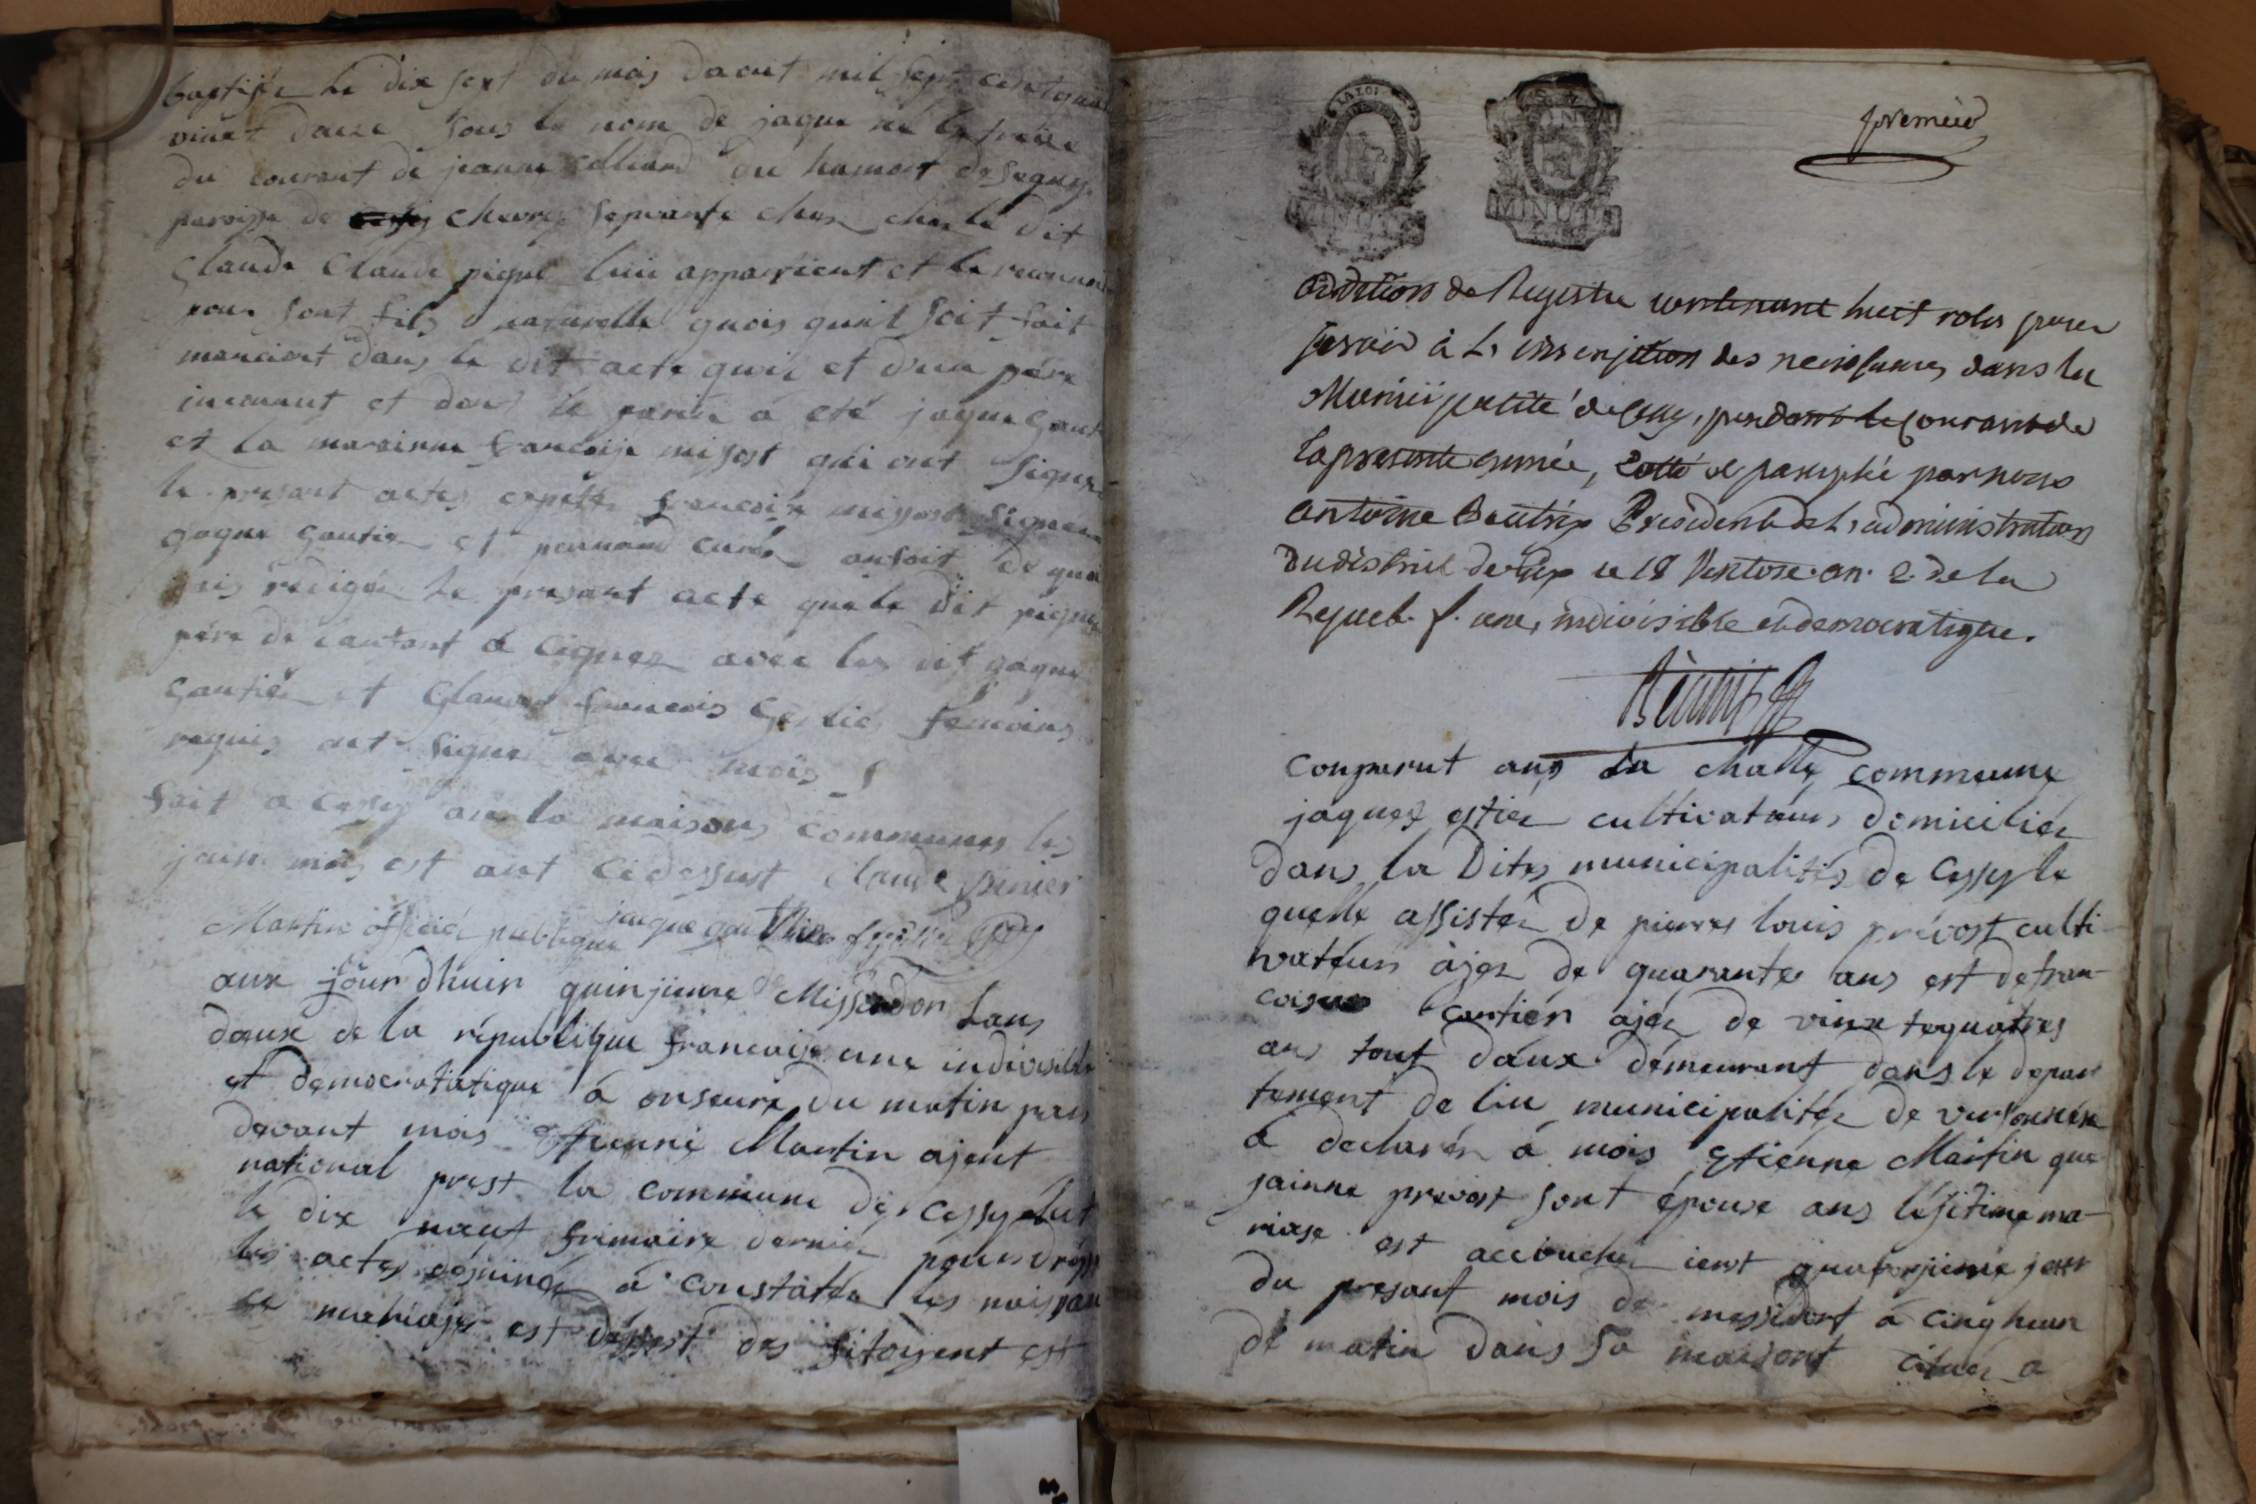 baptisé le dix sept du mois daout mil sept cent quat
vint douze sous le nom de jaque né le treize
du courant de jeanne colliard du hamort de segny
paroisse de chevry sepuante chose che le dit
Claude Claude pique luii appartient et le reconnoi
pour sont fils naturelle quois quil soit fait
manciont dans le dit acte quil et dun père
inconnut et dont le parin a été jaque gaut
et la marainne francoise missost qui ont signez
le presant actes francoise missost signez
jaque gautier et curéz anfoit de quoi
jais redigéz le presant acte que le dit pique
père de lanfant a cignez avec les dit jaque
gautiér et Glaude francois témoins
requis ont signe avec mois
fait a Cessy ans la maisons communes les
jour mois est ant cidessust Claude
Martin officié publique jaque gauthier
aux jour dhuin quinjieme Missidor Lans
doeux de la république francaise une indivisible
et democratiatique á onseure du matin par
devant mois Etienne Martin ajent
national prest la commune de Cessy élut
le dix noeuf frimaire derniér pour drésse
les actes désinné á constatéz les naissan
se mariajes est déssest des sitoyent est
LA LOI
MINUTE
MINUTE
premier
addition de Registre contenant huit roles pour
servir à L'inscription des naissances dans la
Municipalité de Cessy, pendant le Courant de
la presente année, Cotté et paraphé par nous
antoine Beatrix President de L'administration
du district de Gex ce 18 Ventose an 2 de la
Repueb. f. une, indivisible et democratique.
Béatrix
Comparut ans la challe commeune
jaques estier cultivateurs domiciliéz
dans la Dites municipalités de Cessy le
quelle assistéz de pierres louis prévost culti
vateurs àjez de quarantes ans est de fran-
coise Cartiér ajéz de vinx tequatres
ans tout daux démeurant dans le depar
tement de lin municipalitéz de versonnéx
á declaréz á mois Etienne Martin que
jainne prevost sont épouse ans léjitime ma-
riase est accouchéz ierst quatorjieme jour
du presant mois de messidort á cinq heur
de matin dans sa maisont cituéz a